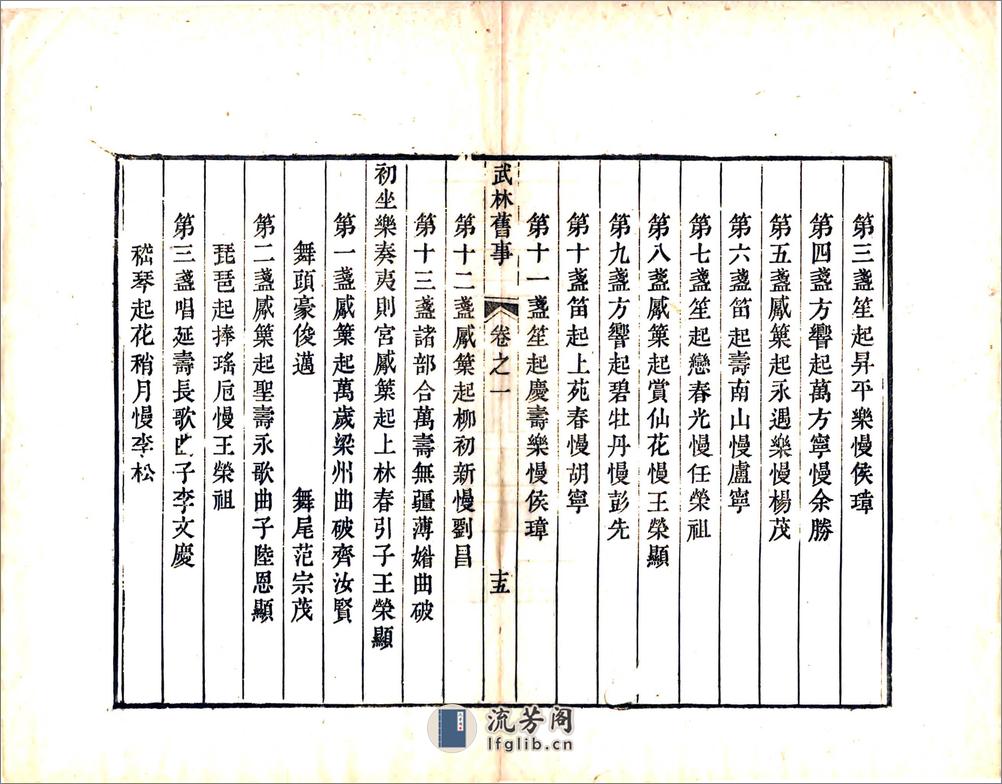 第三盞笙起昇平樂慢侯璋
第四盞方響起萬方寧慢余勝
第五盞觱篥起永遇樂慢楊茂
第六盞笛起壽南山慢盧寧
第七盞笙起戀春光慢任榮祖
第八盞觱篥起賞仙花慢王榮顯
第九盞方響起碧牡丹慢彭先
第十盞笛起上苑春慢胡寧
第十一盞笙起慶壽樂慢侯璋
武林舊事 卷之一 十五
第十二盞觱篥起柳初新慢劉昌
第十三盞諸部合萬壽無疆薄媚曲破
初坐樂奏夷則宮觱篥起上林春引子王榮顯
第一盞觱篥起萬歲梁州曲破齊汝賢
舞頭豪俊邁 舞尾范宗茂
第二盞觱篥起聖壽永歌曲子陸恩顯
琵琶起捧瑤卮慢王榮祖
第三盞唱延壽長歌曲子李文慶
嵇琴起花梢月慢李松
流芳阁
lfglib.cn